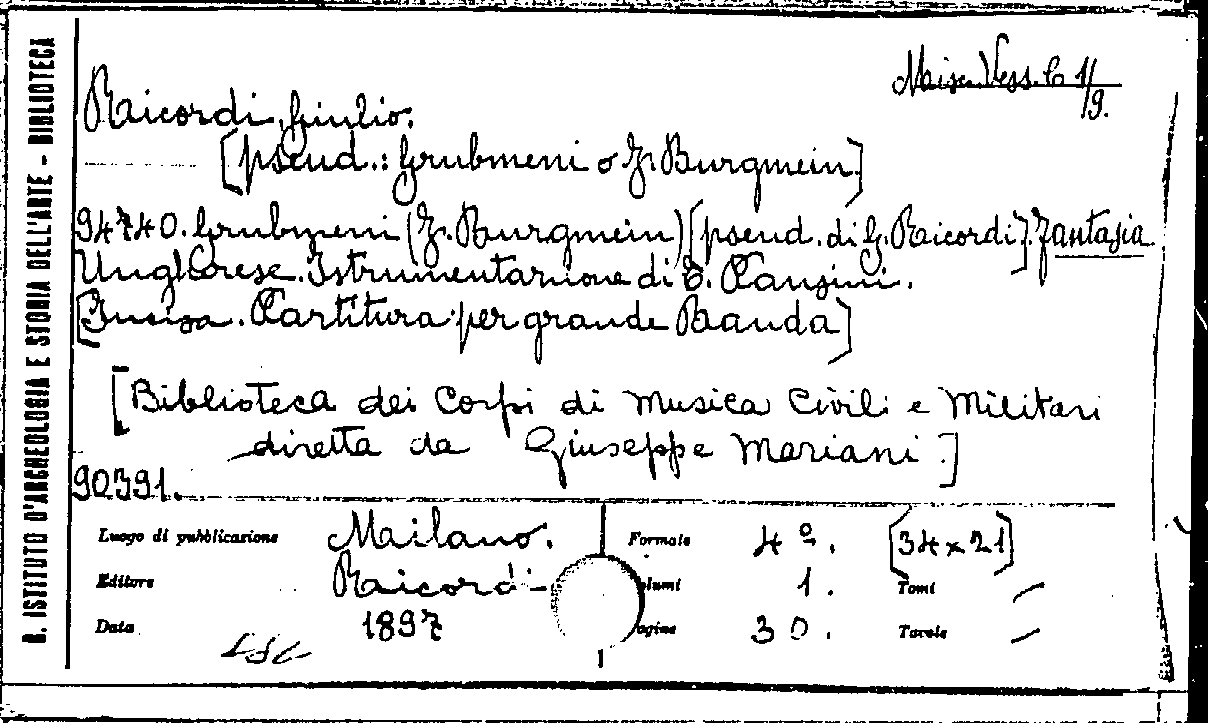 R. ISTITUTO D'ARCHEOLOGIA E STORIA DELL'ARTE - BIBLIOTECA
Misc. Vess. b 1/9.
Ricordi, Giulio.
[pseud.: Grubmeni o J. Burgmein]
94740. Grubmeni (J. Burgmein) [pseud. di G. Ricordi]. Fantasia
Ungherese. Istrumentazione di E. Tansini.
[Incisa. Partitura per grande Banda]
[Biblioteca dei Corpi di Musica Civili e Militari
diretta da Giuseppe Mariani.]
90391.
Luogo di pubblicazione Milano. Formato 4º. [34x21]
Editore Ricordi olumi 1. Tomi —
Data 1897 agine 30. Tavole —